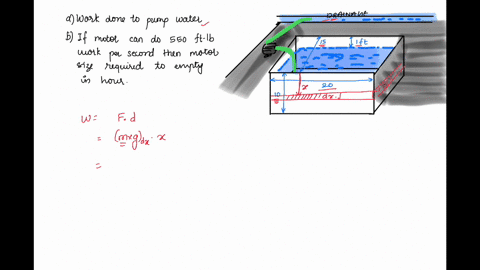 a) Work done to pump water
b) If motor can do 550 ft·lb
work per second then motor
size required to empty
in hour.
W = F.d
= (m×g)dx · x
=
DRAINAGE
15
1ft
x
20
dx
10